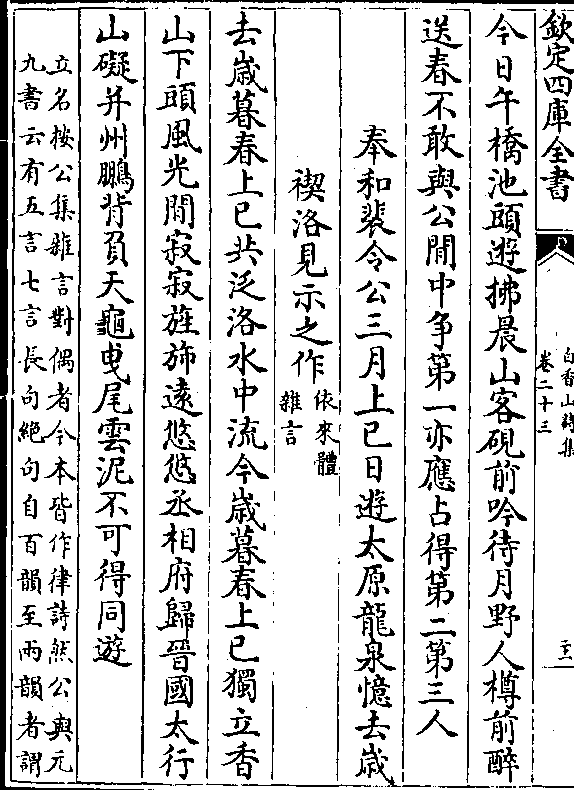 欽定四庫全書
白香山詩集
卷二十三
今日午橋池頭遊拂晨山客硯前吟待月野人樽前醉
送春不敢與公閒中争第一亦應占得第二第三人
奉和裴令公三月上巳日遊太原龍泉憶去歲
禊洛見示之作
依來體
雜言
去歲暮春上巳共泛洛水中流今歲暮春上巳獨立香
山下頭風光閒寂寂旌斾遠悠悠丞相府歸晉國太行
山礙并州鵬背負天龜曳尾雲泥不可得同遊
立名按公集雜言對偶者今本皆作律詩然公與元
九書云有五言七言長句絶句自百韻至兩韻者謂